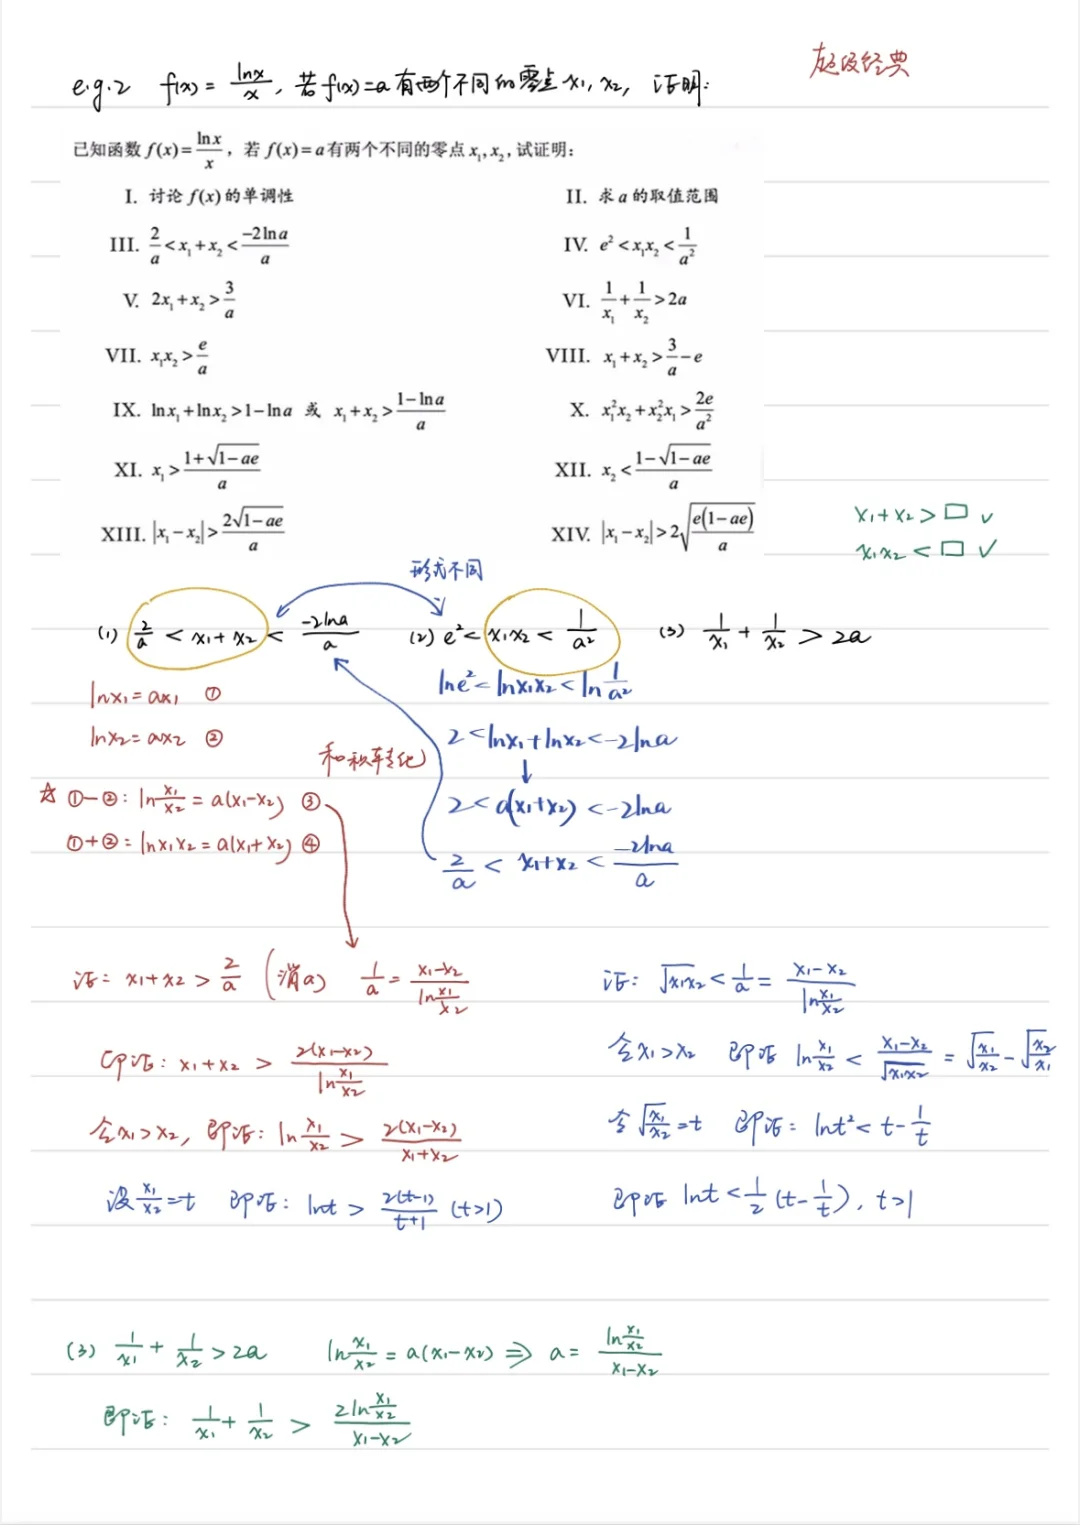 超级经典
e.g.2 f(x) = lnx/x, 若f(x)=a有两个不同的零点x₁, x₂, 证明:
已知函数 f(x)=lnx/x, 若 f(x)=a有两个不同的零点 x₁,x₂,试证明:
I. 讨论 f(x)的单调性 II. 求a的取值范围
III. 2/a<x₁+x₂<-2lna/a IV. e²<x₁x₂<1/a²
V. 2x₁+x₂>3/a VI. 1/x₁+1/x₂>2a
VII. x₁x₂>e/a VIII. x₁+x₂>3/a-e
IX. lnx₁+lnx₂>1-lna 或 x₁+x₂>(1-lna)/a X. x₁²x₂+x₂²x₁>2e/a²
XI. x₁>(1+√(1-ae))/a XII. x₂<(1-√(1-ae))/a
XIII. |x₁-x₂|>2√(1-ae)/a XIV. |x₁-x₂|>2√(e(1-ae)/a)
x₁+x₂>□ ✓
x₁x₂<□ ✓
形式不同
(1) 2/a < x₁+x₂ < -2lna/a (2) e²< x₁x₂ < 1/a² (3) 1/x₁ + 1/x₂ > 2a
lnx₁=ax₁ ①
lnx₂=ax₂ ②
☆ ①-②: ln x₁/x₂ = a(x₁-x₂) ③
①+②: lnx₁x₂ = a(x₁+x₂) ④
和积转化
lne²<lnx₁x₂<ln 1/a²
2<lnx₁+lnx₂<-2lna
↓
2<a(x₁+x₂)<-2lna
2/a < x₁+x₂ < -2lna/a
证: x₁+x₂ > 2/a (消a) 1/a = (x₁-x₂)/ln(x₁/x₂)
即证: x₁+x₂ > 2(x₁-x₂)/ln(x₁/x₂)
令x₁>x₂, 即证: ln x₁/x₂ > 2(x₁-x₂)/(x₁+x₂)
设 x₁/x₂=t 即证: lnt > 2(t-1)/(t+1) (t>1)
证: √x₁x₂ < 1/a = (x₁-x₂)/ln(x₁/x₂)
令x₁>x₂ 即证 ln x₁/x₂ < (x₁-x₂)/√x₁x₂ = √(x₁/x₂) - √(x₂/x₁)
令√(x₁/x₂)=t 即证: lnt²< t-1/t
即证 lnt<1/2(t-1/t), t>1
(3) 1/x₁ + 1/x₂ > 2a ln x₁/x₂ = a(x₁-x₂) ⇒ a = ln(x₁/x₂)/(x₁-x₂)
即证: 1/x₁ + 1/x₂ > 2ln(x₁/x₂)/(x₁-x₂)